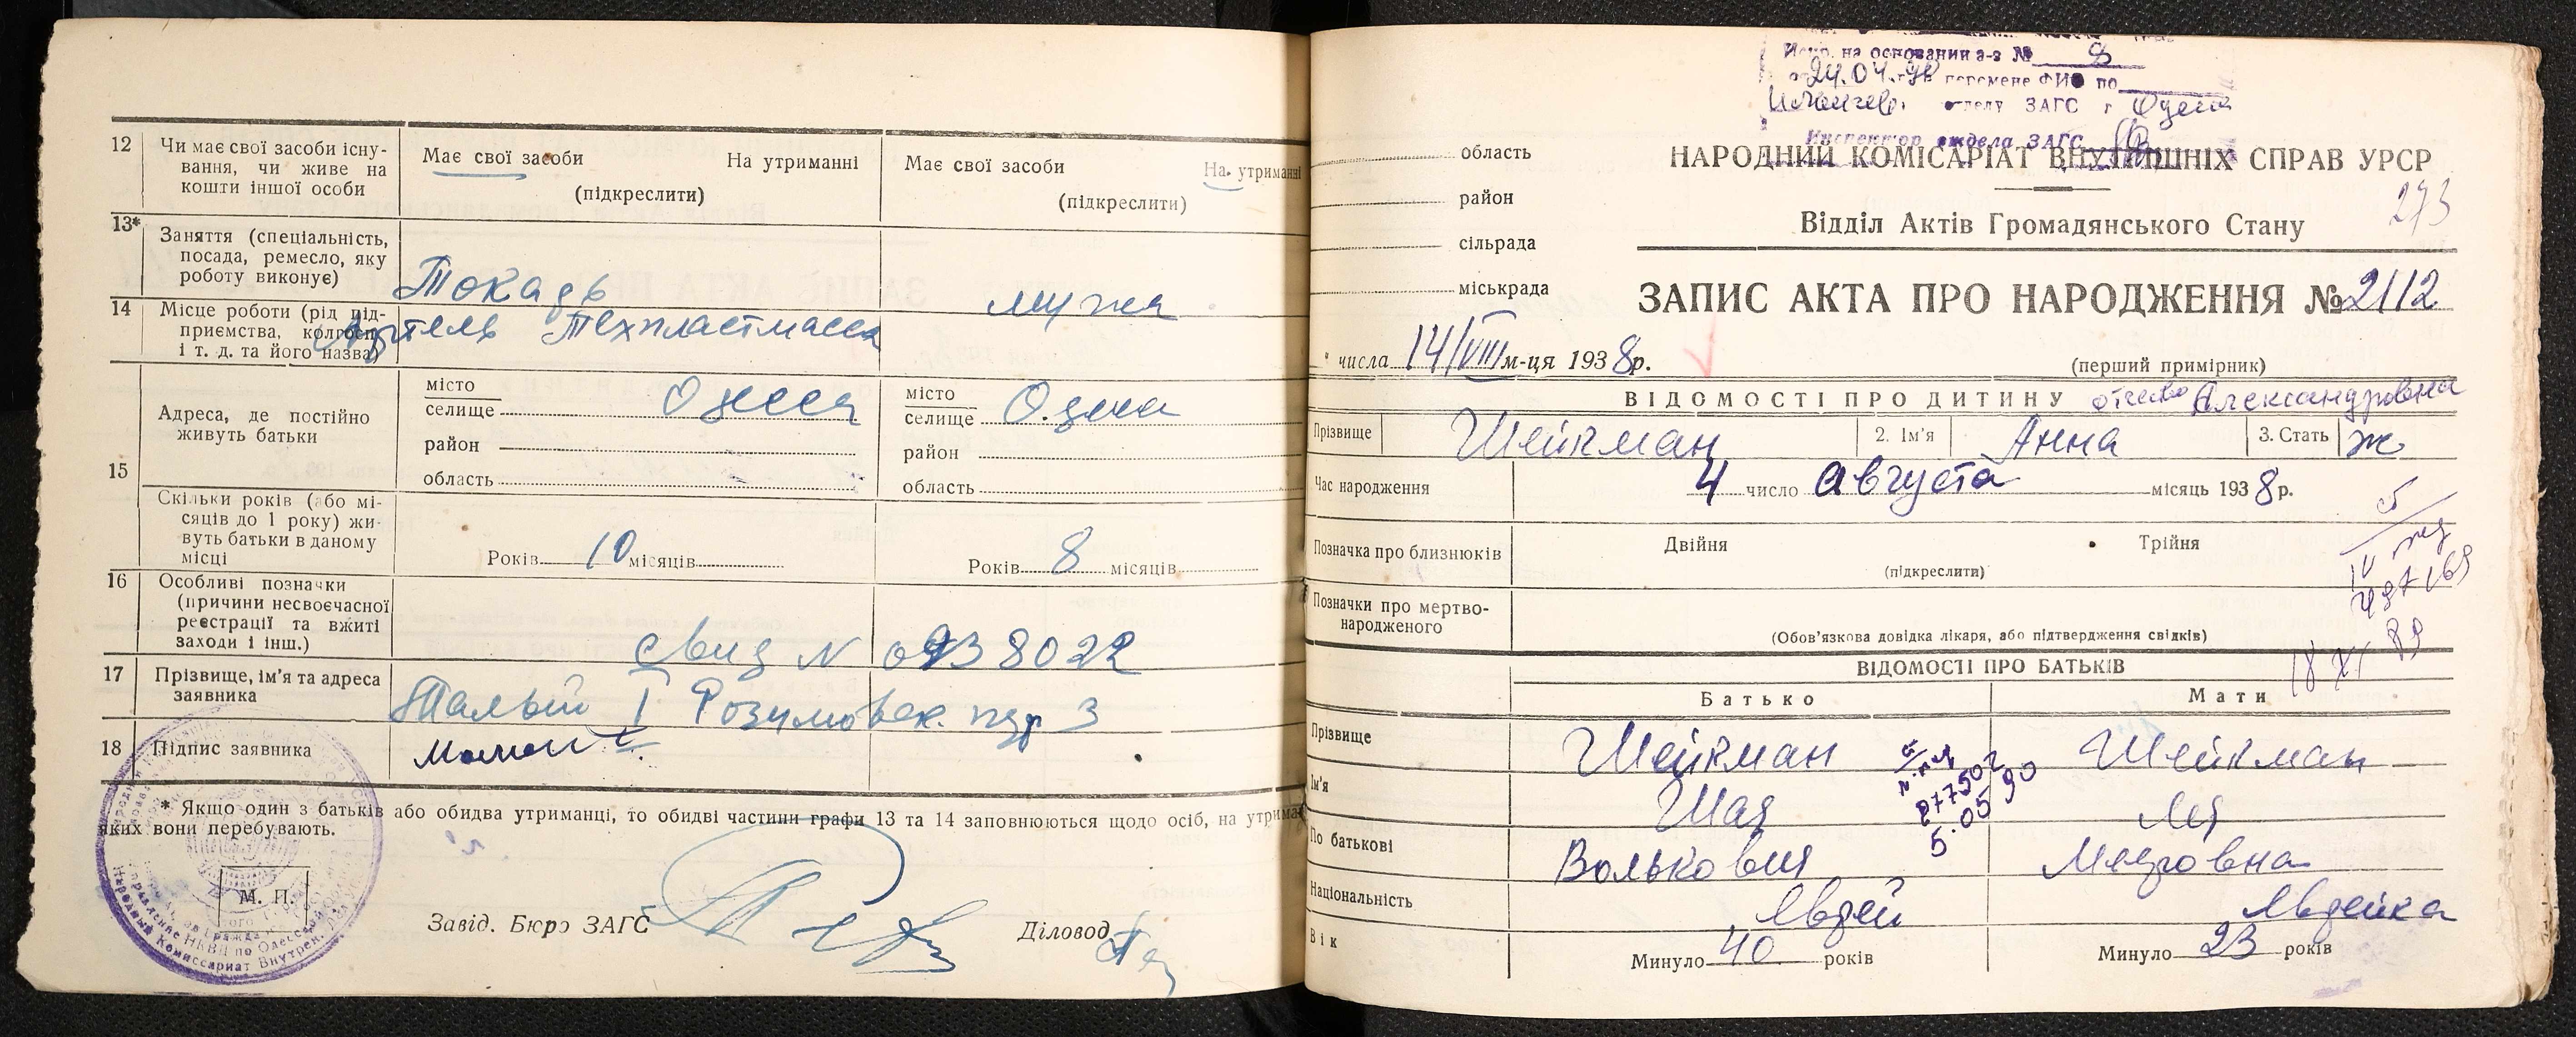 12 Чи має свої засоби існу-
вання, чи живе на
кошти іншої особи
Має свої засоби На утриманні
(підкреслити)
Має свої засоби На утриманні
(підкреслити)
13* Заняття (спеціальність,
посада, ремесло, яку
роботу виконує)
Токарь
мужа
14 Місце роботи (рід під-
приємства, колгоспу
і т. д. та його назва)
Артель Техпластмасса
15 Адреса, де постійно
живуть батьки
місто
селище Одесса
район
область
місто
селище Одесса
район
область
Скільки років (або мі-
сяців до 1 року) жи-
вуть батьки в даному
місці
Років 10 місяців
Років 8 місяців
16 Особливі позначки
(причини несвоєчасної
реєстрації та вжиті
заходи і інш.)
Свид N 0938022
17 Прізвище, ім'я та адреса
заявника
3
18 Підпис заявника
* Якщо один з батьків або обидва утриманці, то обидві частини графи 13 та 14 заповнюються щодо осіб, на утриман
яких вони перебувають.
М. П.
Завід. Бюро ЗАГС
Діловод
на основании а-з № 8
24.04.90 перемене ФИО по
отделу ЗАГС г Одесса
Инспектор отдела ЗАГС
область
район
сільрада
міськрада
НАРОДНИЙ КОМІСАРІАТ ВНУТРІШНІХ СПРАВ УРСР
273
Відділ Актів Громадянського Стану
ЗАПИС АКТА ПРО НАРОДЖЕННЯ № 2112
числа 14/VIII м-ця 1938 р.
(перший примірник)
ВІДОМОСТІ ПРО ДИТИНУ отчество Александровна
Прізвище Шейкман 2. Ім'я Анна 3. Стать ж
Час народження 4 число Августа місяць 1938 р.
Позначка про близнюків Двійня Трійня
(підкреслити)
Позначки про мертво-
народженого
(Обов'язкова довідка лікаря, або підтвердження свідків)
18 XI 89
ВІДОМОСТІ ПРО БАТЬКІВ
Батько Мати
Прізвище Шейкман Шейкман
Ім'я Шая Лея
877502
5.05.90
По батькові Волькович Меєровна
Національність Явдей Явдейка
Вік Минуло 40 років Минуло 23 років